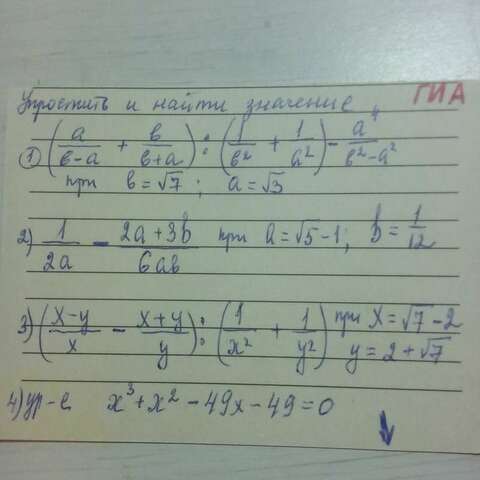 Упростить и найти значение ГИА
① (a/(в-a) + в/(в+a)) : (1/в² + 1/a²) - a⁴/(в²-a²)
при в = √7 ; a = √3
2) 1/2a - (2a+3b)/6ab при a = √5 - 1; b = 1/12
3) ((x-y)/x - (x+y)/y) : (1/x² + 1/y²) при x = √7 - 2
y = 2 + √7
4) ур-е x³ + x² - 49x - 49 = 0